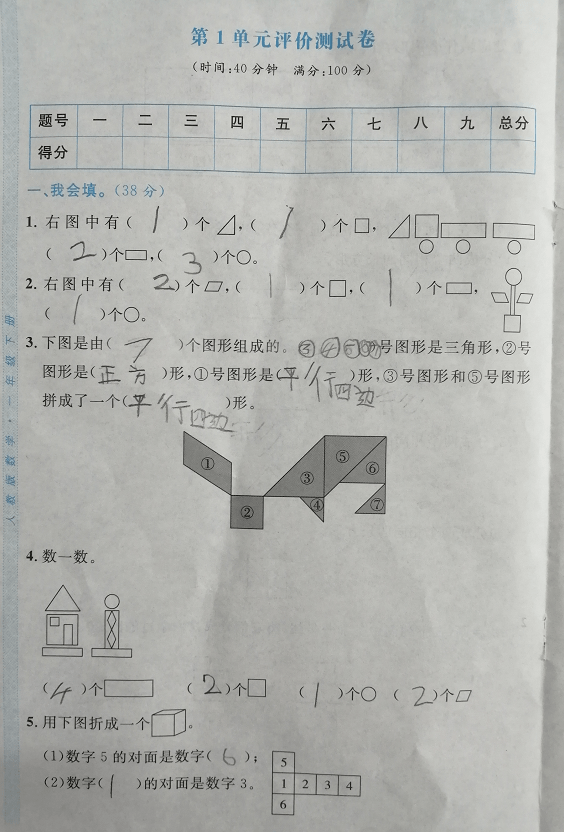 第1单元评价测试卷
(时间:40分钟 满分:100分)
题号 一 二 三 四 五 六 七 八 九 总分
得分
一、我会填。(38分)
1. 右图中有( 1 )个△,( 1 )个□,
( 2 )个▭,( 3 )个○。
2. 右图中有( 2 )个▱,( 1 )个□,( 1 )个▭,
( 1 )个○。
3. 下图是由( 7 )个图形组成的。③④⑤⑥⑦号图形是三角形,②号
图形是(正方)形,①号图形是(平行四边)形,③号图形和⑤号图形
拼成了一个(平行四边)形。
① ② ③ ④ ⑤ ⑥ ⑦
4. 数一数。
( 4 )个▭ ( 2 )个□ ( 1 )个○ ( 2 )个▱
5. 用下图折成一个。
(1)数字5的对面是数字( 6 );
(2)数字( 1 )的对面是数字3。
5
1 2 3 4
6
人教版数学·一年级下册